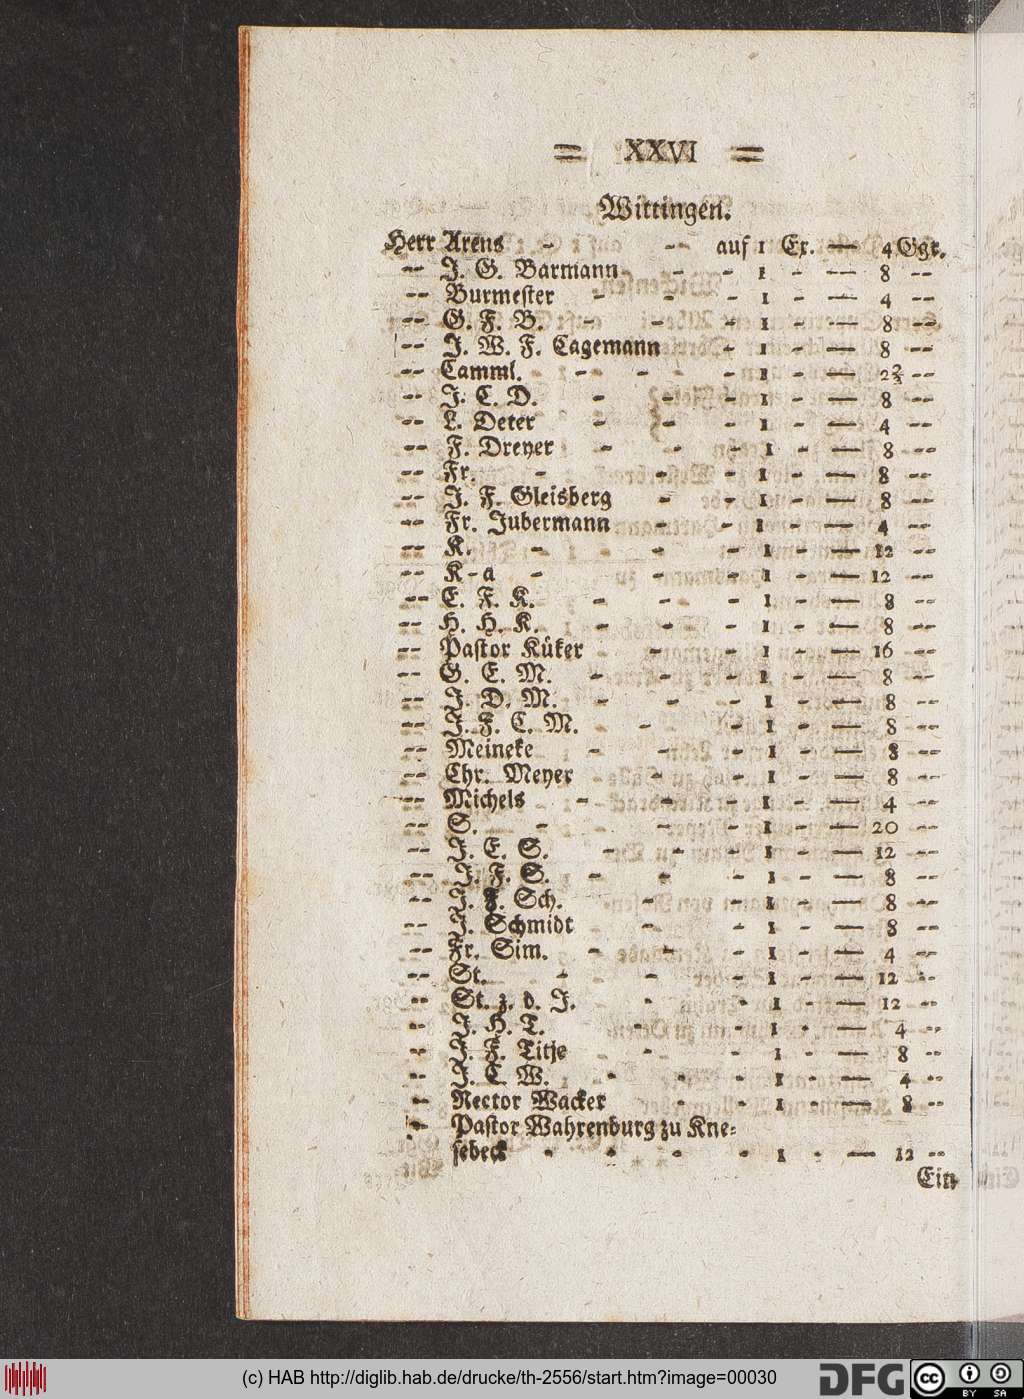 = XXVI =
Wittingen.
Herr Arens - -- auf 1 Ex. — 4 Ggr.
-- J. G. Barmann - - 1 - — 8 --
-- Burmester - - - 1 - — 4 --
-- G. F. B. - - - 1 - — 8 --
-- J. W. F. Cagemann - 1 - — 8 --
-- Camml. - - - - 1 - — 2⅔ --
-- J. C. D. - - - 1 - — 8 --
-- L. Deter - - - 1 - — 4 --
-- F. Dreyer - - - 1 - — 8 --
-- Fr. - - - 1 - — 8 --
-- J. F. Gleisberg - - 1 - — 8 --
-- Fr. Jubermann - - 1 - — 4 --
-- K. - - - 1 - — 12 --
-- K-a - - - 1 - — 12 --
-- E. F. K. - -- - 1 - — 8 --
-- H. H. K. - -- - 1 - — 8 --
-- Pastor Küker - - 1 - — 16 --
-- G. E. M. - - - 1 - — 8 --
-- J. D. M. - - - 1 - — 8 --
-- J. F. C. M. - - 1 - — 8 --
-- Meineke - - - 1 - — 8 --
-- Chr. Meyer - - 1 - — 8 --
-- Michels - - - 1 - — 4 --
-- S. - - - 1 - — 20 --
-- J. E. S. - - - 1 - — 12 --
-- J. F. S. - - - 1 - — 8 --
-- J. F. Sch. - - 1 - — 8 --
-- J. Schmidt - - 1 - — 8 --
-- Fr. Sim. - - - 1 - — 4 --
-- St. - - - 1 - — 12 --
-- St. z. d. J. - - 1 - — 12 --
-- J. H. T. - - 1 - — 4 --
-- J. F. Titje - - 1 - — 8 --
-- J. C. W. - - - 1 - — 4 --
-- Rector Wacker - - 1 - — 8 --
-- Pastor Wahrenburg zu Kne-
sebeck - - - 1 - — 12 --
Ein
(c) HAB http://diglib.hab.de/drucke/th-2556/start.htm?image=00030
DFG
cc BY SA